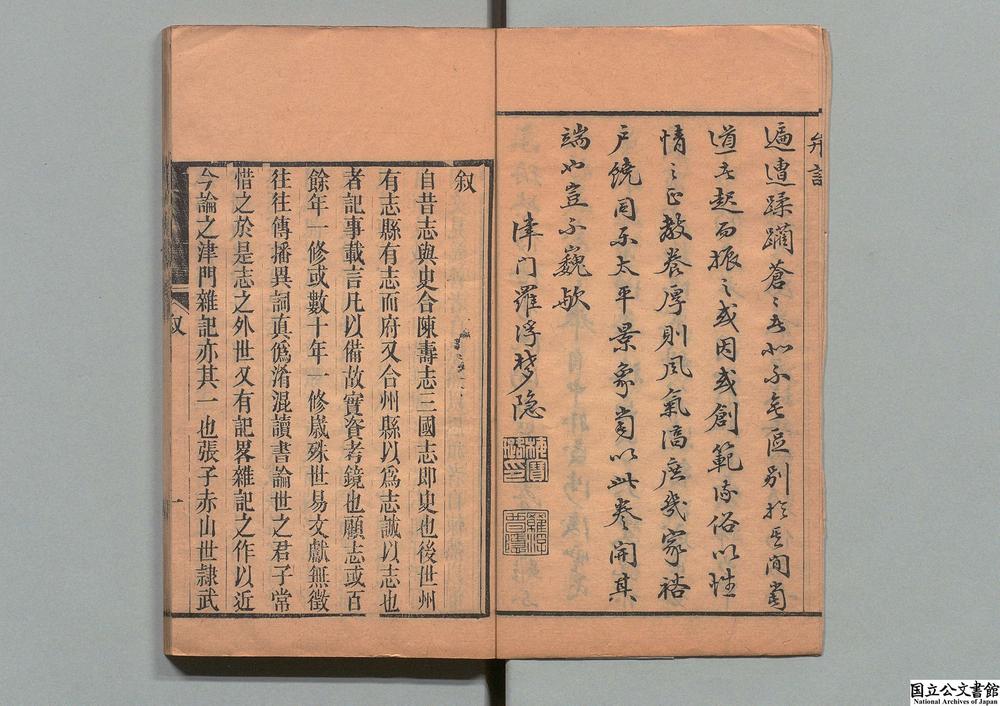 弁言
遍遭蹂躪蒼〻者非不无區別於其間尚
道者起而振之或因或創範我俗以性
情之正教養厚則风氣淳庶幾家裕
户饒同樂太平景象當以此卷開其
端也豈不巍歟
津门羅浮梦隐
叙
自昔志與史合陳壽志三國志即史也後世州
有志縣有志而府又合州縣以爲志誠以志也
者記事載言凡以備故實資考鏡也顧志或百
餘年一修或數十年一修歲殊世易文獻無徵
往往傳播異詞真僞淆混讀書論世之君子常
惜之於是志之外世又有記畧雜記之作以近
今論之津門雜記亦其一也張子赤山世隸武
叙
一
国立公文書館
National Archives of Japan